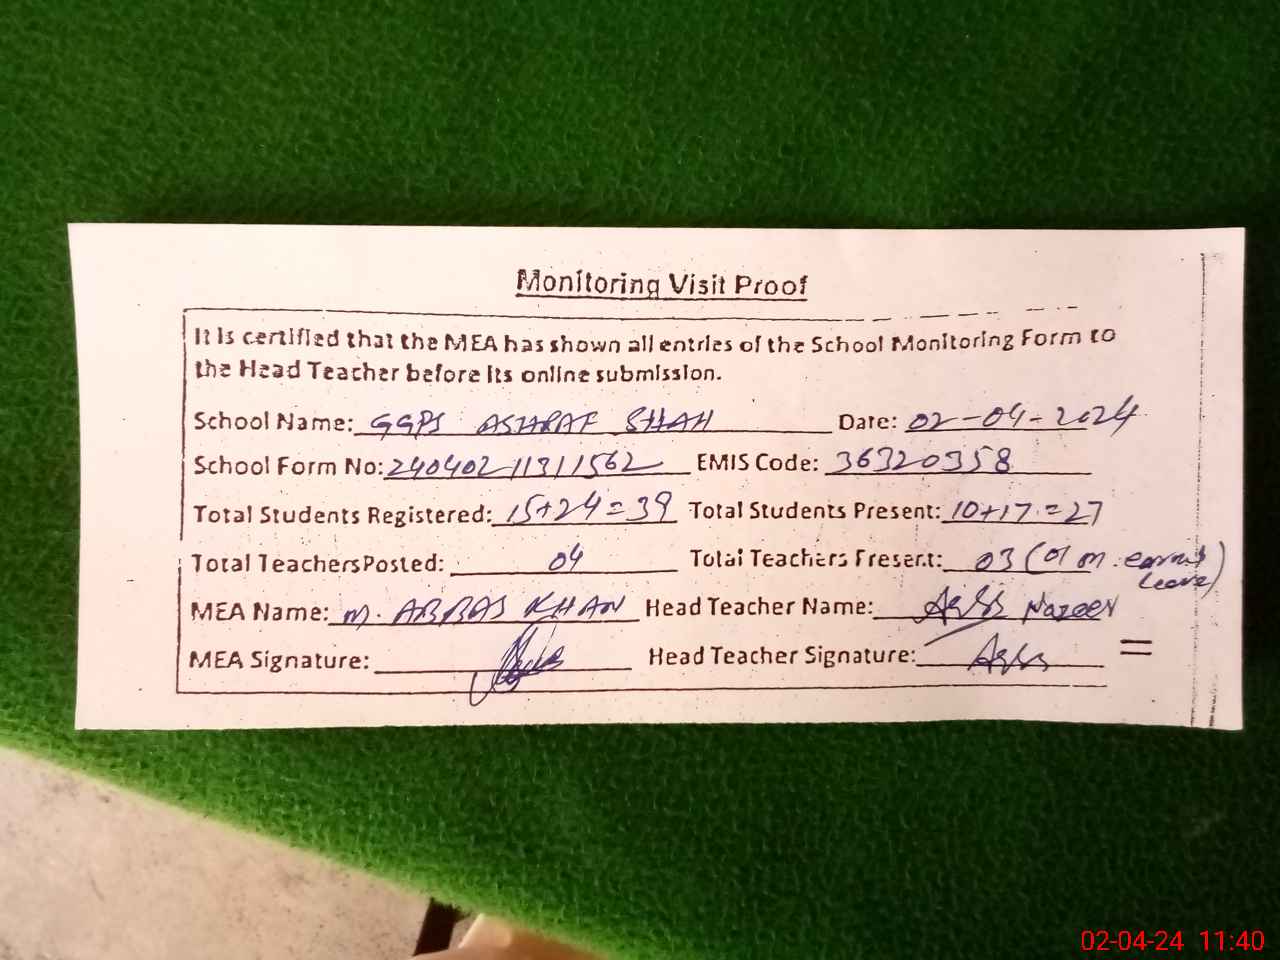 Monitoring Visit Proof
It is certified that the MEA has shown all entries of the School Monitoring Form to
the Head Teacher before its online submission.
School Name: GGPS ASHRAF SHAH Date: 02-04-2024
School Form No: 24040211311562 EMIS Code: 36320358
Total Students Registered: 15+24=39 Total Students Present: 10+17=27
Total Teachers Posted: 04 Total Teachers Present: 03 (01 m. earned
leave)
MEA Name: M. ABBAS KHAN Head Teacher Name: Nazeer
MEA Signature: Head Teacher Signature:
02-04-24 11:40